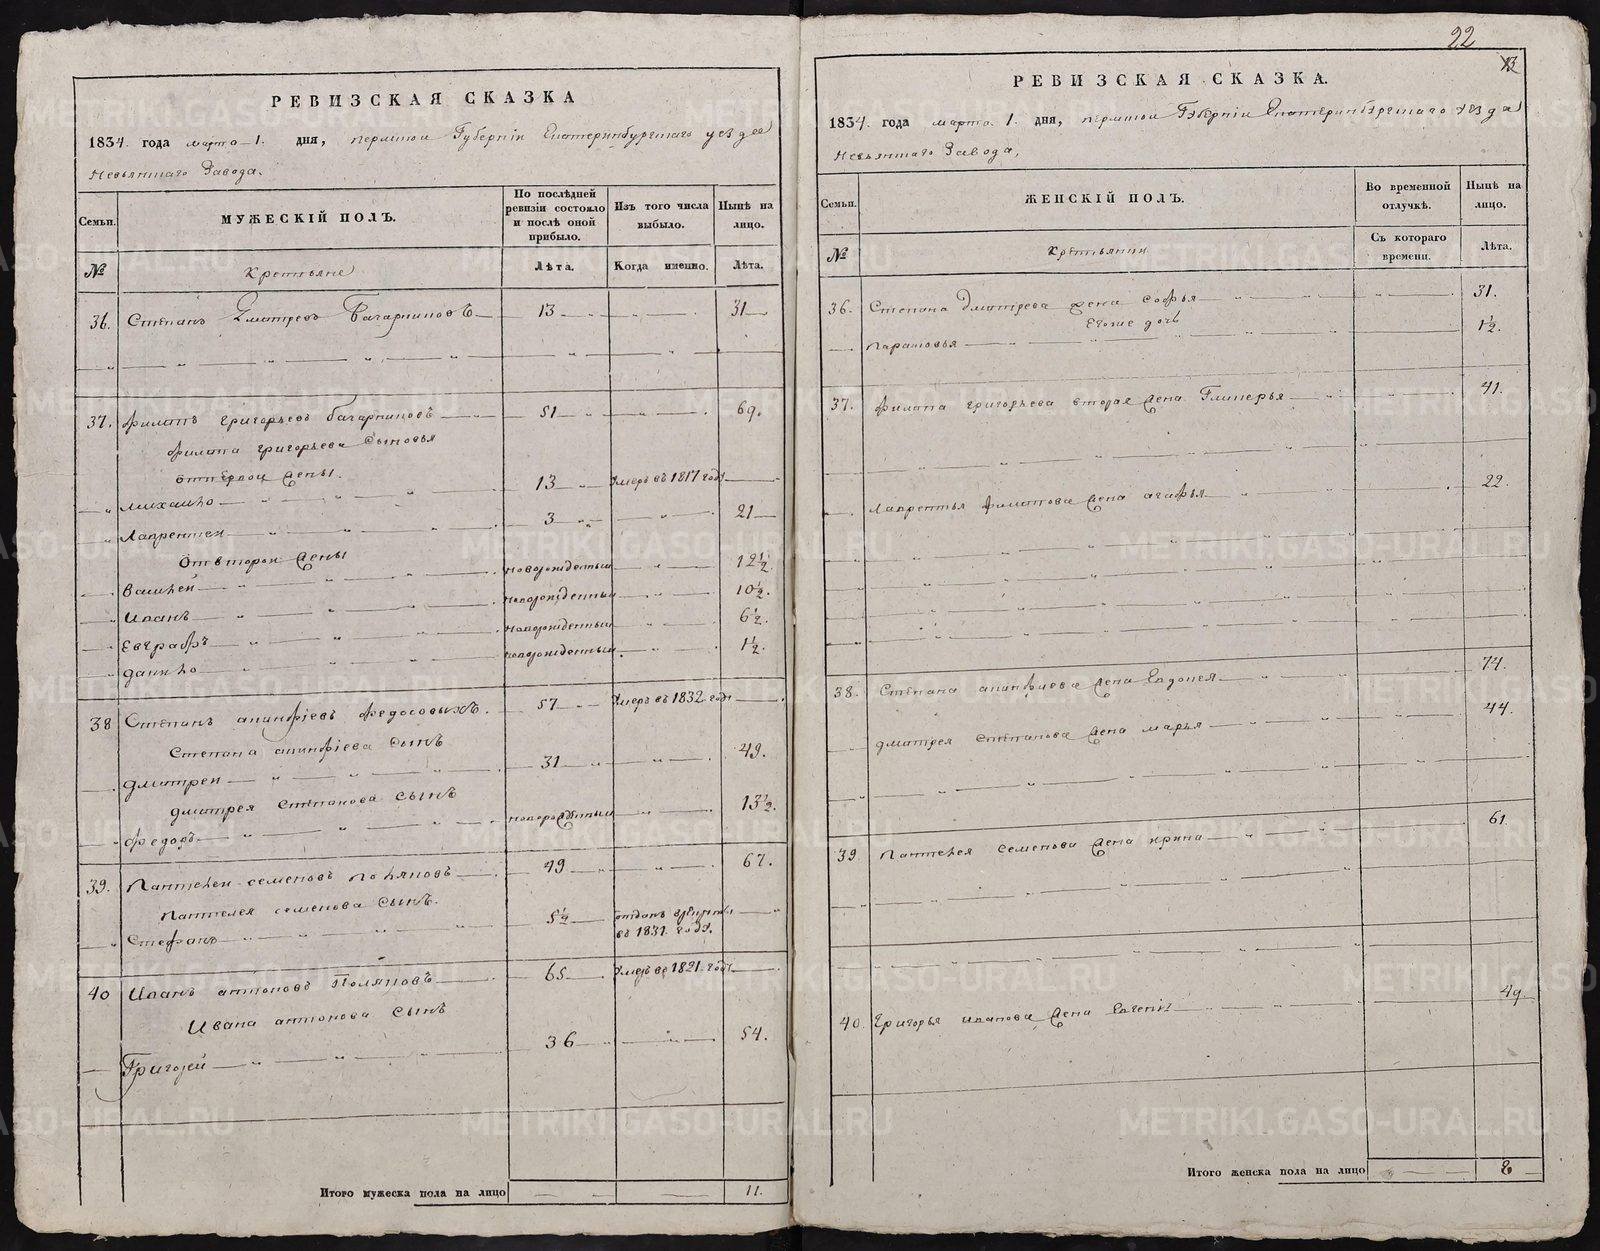 22
13
РЕВИЗСКАЯ СКАЗКА
1834. года марта 1. дня, пермской Губернiи Екатеринбургскаго уезда
Невьянскаго Завода.
Семьи.
МУЖЕСКIЙ ПОЛЪ.
По послѣдней ревизiи состояло и послѣ оной прибыло.
Изъ того числа выбыло.
Нынѣ на лицо.
№
Крестьяне
Лѣта.
Когда именно.
Лѣта.
36. Степанъ Дмитревъ 13 31
37. Филатъ григорьевъ 51 69.
Филата григорьева сыновья
от первой жены.
Михайло 13 Умеръ въ 1817 году
Лаврентей 3 21
От второй жены
Василей новорожденный 12½
Иванъ новорожденный 10½.
Евграфъ новорожденный 6½.
Данило новорожденный 1½.
38 Степанъ Федосовыхъ. 57 Умеръ въ 1832 году
Степана сынъ
Дмитрей 31 49.
Дмитрея степанова сынъ
Федоръ новорожденный 13½.
39. Пантелей семеновъ Поляковъ 49 67.
Пантелея семенова сынъ.
Стефанъ 5½ отданъ
въ 1831. году.
40 Иванъ антоновъ Поляковъ 65 Умеръ въ 1821. году
Ивана антонова сынъ
Григорей 36 54.
Итого мужеска пола на лицо 11.
РЕВИЗСКАЯ СКАЗКА.
1834. года марта 1. дня, пермской Губернiи Екатеринбургскаго уезда
Невьянскаго Завода,
Семьи.
ЖЕНСКIЙ ПОЛЪ.
Во временной отлучкѣ.
Нынѣ на лицо.
№
Крестьянки
Съ котораго времени.
Лѣта.
36. Степана Дмитрева жена софья 31.
Егоже дочь
парасковья 1½.
37. Филата григорьева вторая жена Гликерья 41.
Лаврентья филатова жена агафья 22.
38. Степана жена Евдокея 74.
Дмитрея степанова жена марья 44.
39. Пантелея семенова жена ирина 61.
40. Григорья иванова жена 49
Итого женска пола на лицо 8
METRIKI.GASO-URAL.RU